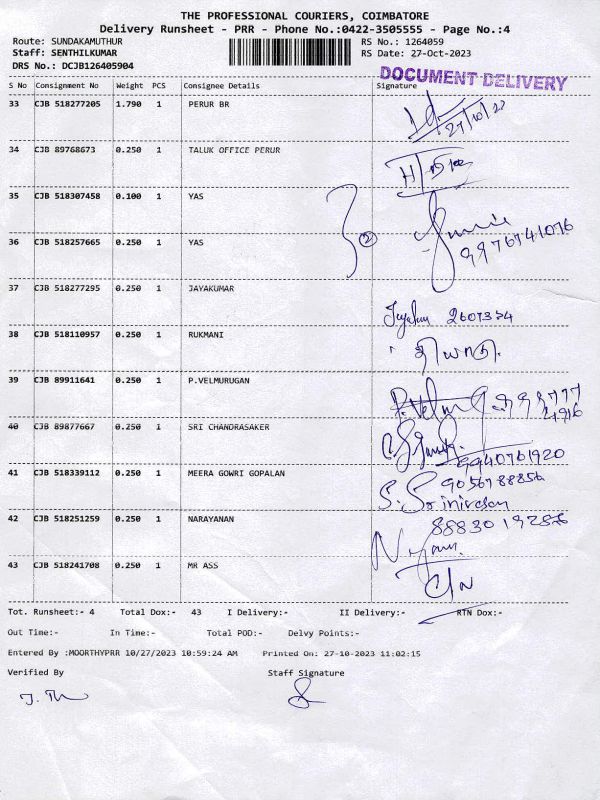 THE PROFESSIONAL COURIERS, COIMBATORE
Delivery Runsheet - PRR - Phone No.:0422-3505555 - Page No.:4
Route: SUNDAKAMUTHUR RS No.: 1264059
Staff: SENTHILKUMAR RS Date: 27-Oct-2023
DRS No.: DCJB126405904
DOCUMENT DELIVERY
S No Consignment No Weight PCS Consignee Details Signature
33 CJB 518277205 1.790 1 PERUR BR
27/10/23
34 CJB 89768673 0.250 1 TALUK OFFICE PERUR
35 CJB 518307458 0.100 1 YAS
36 CJB 518257665 0.250 1 YAS
2
9976741076
37 CJB 518277295 0.250 1 JAYAKUMAR
38 CJB 518110957 0.250 1 RUKMANI
39 CJB 89911641 0.250 1 P.VELMURUGAN
P.Velm
40 CJB 89877667 0.250 1 SRI CHANDRASAKER
9940761920
41 CJB 518339112 0.250 1 MEERA GOWRI GOPALAN
9056788856
S. Srinivasan
42 CJB 518251259 0.250 1 NARAYANAN
43 CJB 518241708 0.250 1 MR ASS
Tot. Runsheet:- 4 Total Dox:- 43 I Delivery:- II Delivery:- RTN Dox:-
Out Time:- In Time:- Total POD:- Delvy Points:-
Entered By :MOORTHYPRR 10/27/2023 10:59:24 AM Printed On: 27-10-2023 11:02:15
Verified By Staff Signature